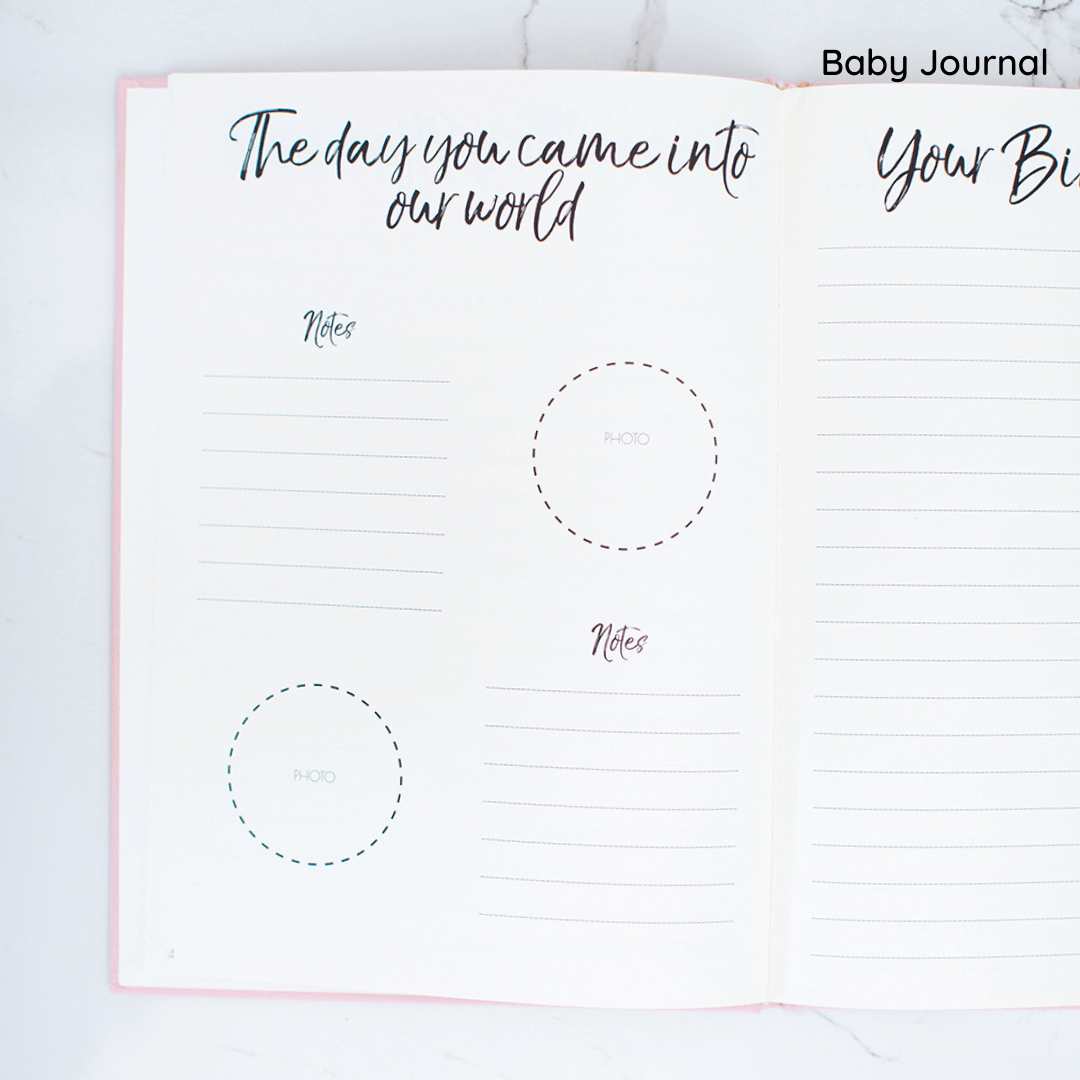 Baby Journal
The day you came into
our world
Notes
PHOTO
Notes
PHOTO
4
Your Bi